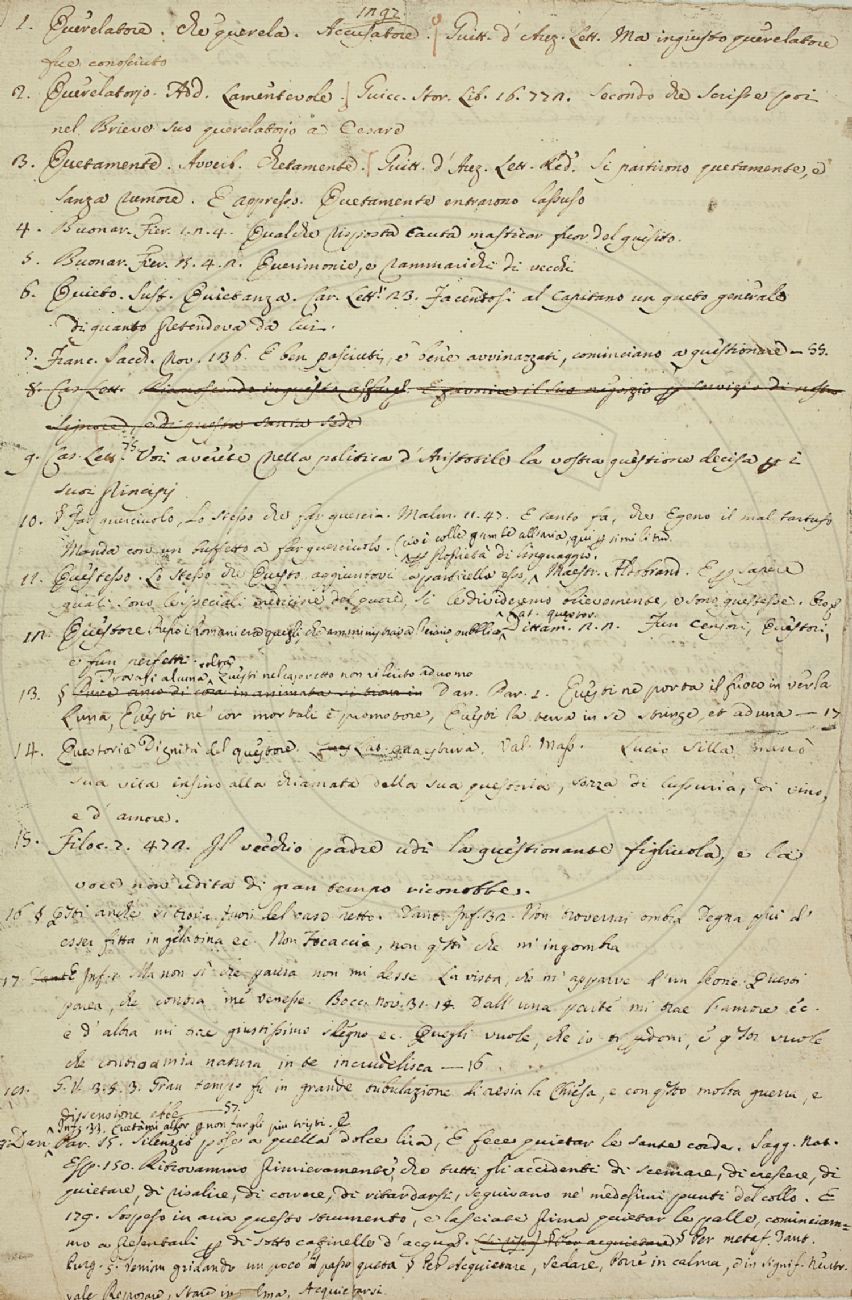 1. Querelatore. Che querela. Accusatore. Guitt. d'Arez. Lett. Ma ingiusto querelatore
fue conosciuto
2. Querelatorio. Add. Lamentevole] Guicc. Stor. Lib. 16. 772. Secondo che scrisse poi
nel Brieve suo querelatorio a Cesare
3. Quetamente. Avverb. Chetamente.] Guitt. d'Arez. Lett. Red. Si partirono quetamente, e
sanza rumore. E appresso. Quetamente entrarono lassuso
4. Buonar. Fier. 1.2.4. Qualche risposta cauta masticar fuor del quesito.
5. Buonar. Fier. 4.2. Querimonie, e rammarichi di vecchi
6. Quieto. Sust. Quietanza. Car. Lett. 23. Facentosi al Capitano un queto generale
di quanto pretendeva da lui.
7. Franc. Sacch. Nov. 136. E ben pasciuti, e bene avvinazzati, cominciano a questionare — 55.
8. Car. Lett. il suo negozio servizio di nostro
Signore, e di questa santa sede
9. Car. Lett. 75 Voi averete nella politica d'Aristotile la vostra questione decisa p i
suoi principj
10. § Far querciuolo, Lo stesso che far quercia. Malm. 11. 47. E tanto fa, che Egeno il mal tartufo
Manda con un buffetto a far querciuolo. (cioè colle gambe all'aria qui p similitud.
p proprietà di linguaggio.
11. Questesso. Lo stesso che Questo, aggiuntovi la particella esso, Maestr. Aldobrand. E p sapere
quali sono le speciali medicine del quore, si le divideremo brievemente, e sono questesse.
12. Questore Presso i Romani era quegli che amministrava l'erario pubblico Lat. questor. Dittam. 2. 2. Fun censori, Questori,
e fun prefetti
Trovasi alcuna volta Questi nel caso retto non riferito ad uomo
13. § cosa inanimata si trova in Dan. Par. 1. Questi ne porta il fuoco in ver la
Luna, Questi ne' cor mortali è promotore, Questi la terra in se stringe, et aduna — 17
14. Questoria Dignità del questore. Lat. quaestura. Val. Mass. Lucio Silla menò
sua vita insino alla chiamata della sua questoria, sozza di lussuria, di vino,
e d'amore.
15. Filoc. 7. 472. Il vecchio padre udì la questionante figliuola, e la
voce non udita di gran tempo riconobbe.
16 § Questi anche si trova fuori del caso retto. Dant. Inf. 32. Non troverai ombra degna più d'
esser fitta in gelatina ec. Non Focaccia, non qsti che m'ingombra
17. E Inf. 1. Ma non sì che paura non mi desse La vista, che m'apparve d'un leone. Questi
parea, che contra me venesse. Bocc. nov. 31. 14. Dall'una parte mi trae l'amore ec.
e d'altra mi trae giustissimo sdegno ec. Quegli vuole, che io ti perdoni, e qsti vuole
che contro a mia natura in te incrudelisca — 16
G. V. 3. 5. 3. Gran tempo fu in grande tribulazione di resia la Chiesa, e con qsto molta guerra, e
dissensione — 57.
Inf. 33. Quetami allor p non fargli più tristi. E
Dan. Par. 15. Silenzio pose a quella dolce lira, E fece quietar le sante corde. Sagg. Nat.
Esp. 150. Ritrovammo primieramente, che tutti gli accidenti di scemare, di crescere, di
quietare, di risalire, di correre, di ritardarsi, seguivano ne' medesimi punti del collo. E
179. Sospeso in aria questo strumento, e lasciate prima quietar le palle, cominciam-
mo a presentarli p di sotto catinelle d'acqua. § Per metaf. Dant.
Purg. 5. Venian gridando un poco il passo queta § Per Acquietare, Sedare, Porre in calma, e in signif. Neutr.
vale Riposare, Stare in calma, Acquietarsi.